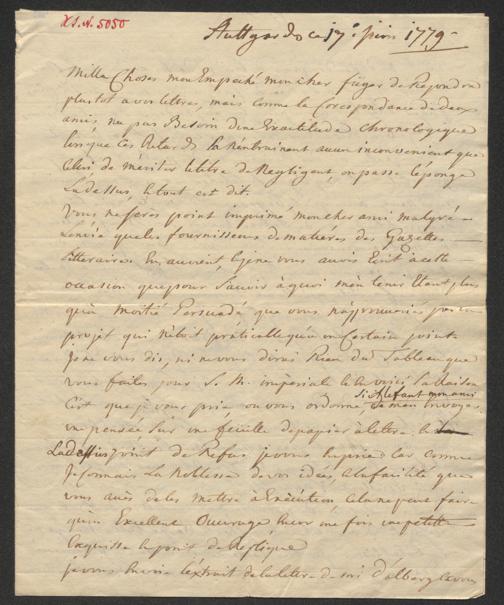 XS.A. 5050
Stuttgardo ce 17e juin 1779
Mille Choses mon Empeché mon cher füger de Repondre
plustot a vos letres, mais comme la Corespondance de deux
amis na pas Besoin dune Exactitude Chronologique
lorsque ces Retards la n'entrainent aucun inconvenient que
Celui de mériter le titre de Negligent, on passe l'éponge
La dessus, & tout est dit.
Vous ne serés point imprimé mon cher ami malgré
L'envie que les fournisseurs de matiéres des Gazettes
littéraires En auroient, je ne vous avois Ecrit a cette
occasion que pour Savoir à quoi m'en tenir Etant plus
qu'a moitié Persuadé que vous n'aprouveriés pas un
projet qui n'étoit pratiquable qu'a un Certain point.
Je ne vous dis, ni ne vous dirai Rien du Tableau que
vous faites pour S. M. imperiale le En voici La Raison
C'est que je vous prie, ou vous ordonne, de men Envoyer
Si il le faut mon ami
une pensée Sur une feuille de papier à letre, &
La dessus point de Refus je vous En prie Car comme
Je Connais La Noblesse de vos idées, & la facilité que
vous avés de les mettre à Exécution cela ne peut faire
qu'un Excellent Ouvrage Encor une fois une petite
Esquisse & point de Replique
je vous Envoie l'extrait de la letre de Mr d'alberg